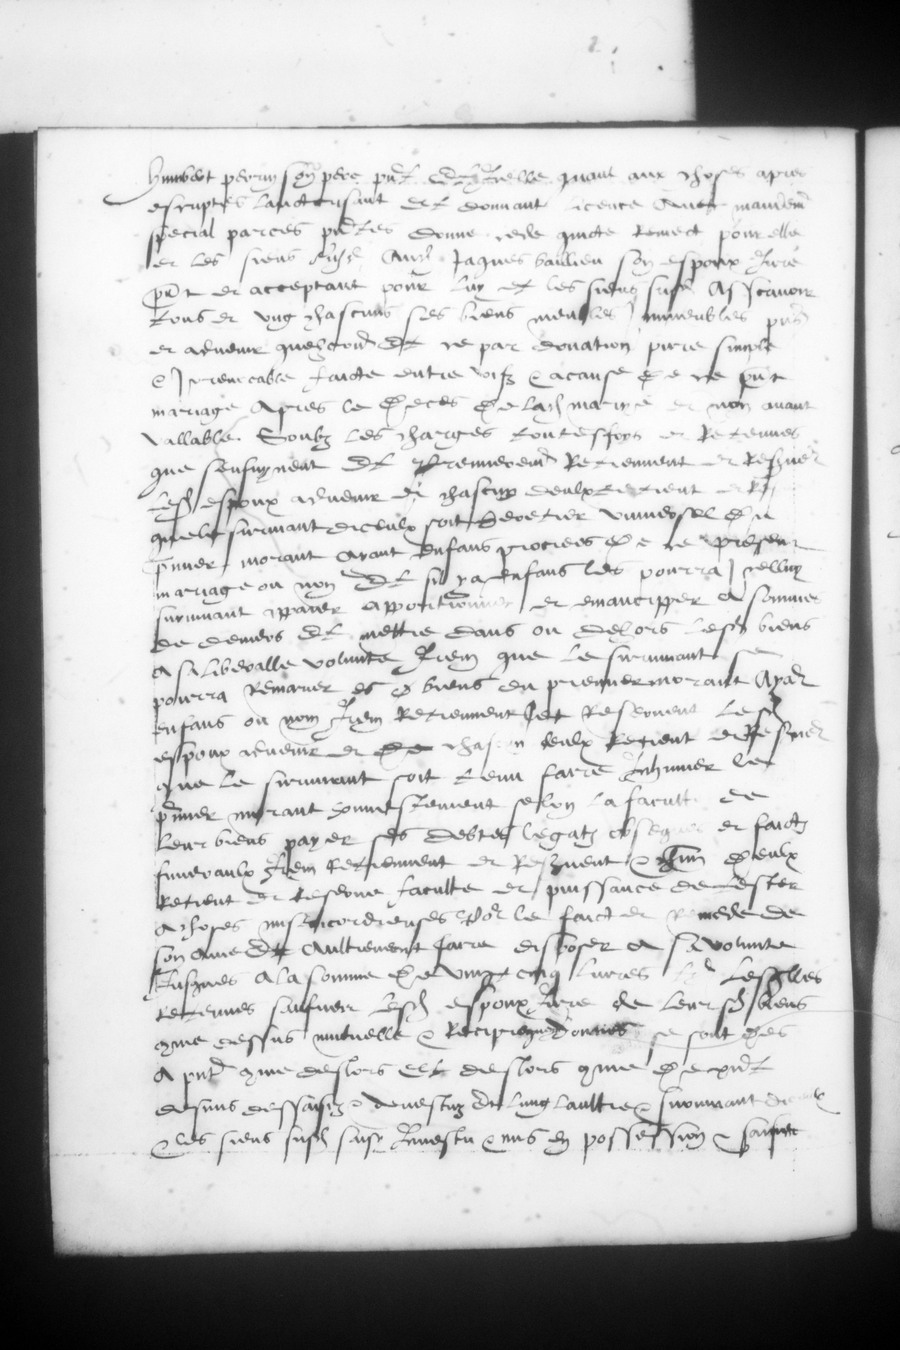 humbert perrin son pere pnt et a elle quant aux choses apres
escriptes lauctorisant et donnant licence avec mandemt
special par ces pntes donne cede quicte remect pour elle
et les siens aud Jaques baullieu son espoux
pnt et acceptant pour luy et les siens susd Asscavoir
tous et ung chascuns ses biens meubles Immeubles pns
et advenir quelzconq et ce par donation pure simple
et Irrevocable faicte entre vifz et a cause de ce pnt
mariage Apres le deces de lad mariee et non avant
vallable. Soubz les charges toutesfoys et Retenues
que sensuyvent Et premierement Retiennent et Reservent
lesd espoux advenir et chascun deulx retient et
que le survivant diceulx soit heretier universel du
pmier morant ayant enfans procrees de ce present
mariage ou non Et si y a enfans les pourra Icelluy
survivant apparer apportionner et emancipper a sommes
de deniers Et mettre dans ou dehors lesd biens
a sa liberalle volunte Item que le survivant se
pourra Remarier es d biens du premier morant Ayant
enfans ou non Item Retiennent et Reservent lesd
espoux advenir et de chascun deulx Retient et Reserve
que le survivant soit tenu faire Inhumer le
pmier morant honnestement selon la faculte de
leur biens payer ses debtes legatz obseques et faictz
funeraulx Item Retiennent et Reservent et chun deulx
Retient et reserve faculte et puissance de lester
a choses misericordieuses por le faict et remede de
son ame et Aultrement faire disposer a sa volunte
Jusques a la somme de vingt cinq livres lesqlles
retenues saulves lesd espoux de leursd biens
come dessus mutuelle et Reciproque donnes se sont des
a pnt come des lors et des lors come de pnt
desmis dessaisiz et devestuz lung laultre et survivant diceulx
et les siens susd Investu et mis en possession et saisine